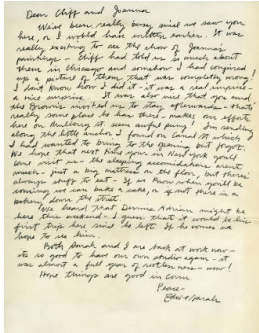 Dear Cliff and Joanna
We've been really busy since we saw you
here, or I would have written earlier. It was
really exciting to see the show of Joanna's
paintings - Cliff had told us so much about
them in Chicago and somehow I had conjured
up a picture of them that was completely wrong!
I don't know how I did it - it was a real surprise -
a nice surprise. It was also nice that you and
the Browns invited us to stay afterwards - that's
really some place he has there, makes our efforts
here on Mulberry St seem awful puny! I'm sending
along the little anchor I found on Canal St which
I had wanted to bring to the opening but forgot.
We hope that next time you're in New York you'd
come visit us - the sleeping accomodations aren't
much - just a big mattress on the floor, but there's
always stuff to eat - If we know when you'll be
coming we can bake a cake, or if not there is a
bakery down the street.
We heard that Dennis Adrian might be
here this weekend - I guess that it would be his
first trip here since he left. If he comes we
hope to see him.
Both Sarah and I are back at work now -
its so good to have our own studio again - it
was almost a full year of
Hope things are good in
Peace -
Ed & Sarah